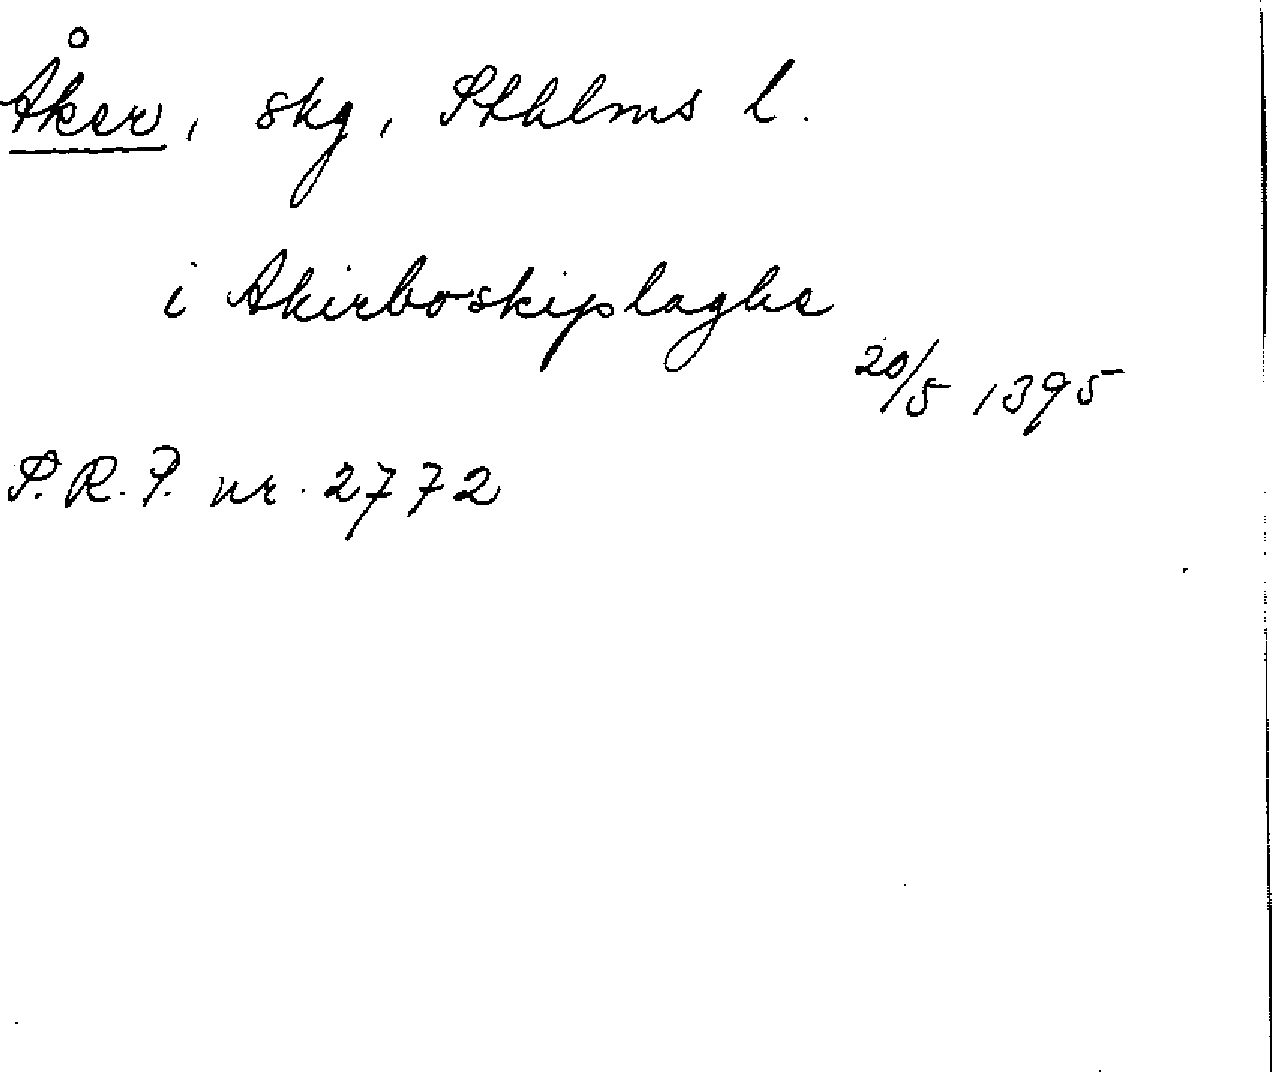 Åker, skg, Sthlms l.
i Akirboskiplaghe
20/5 1395
P.R.P. nr. 2772